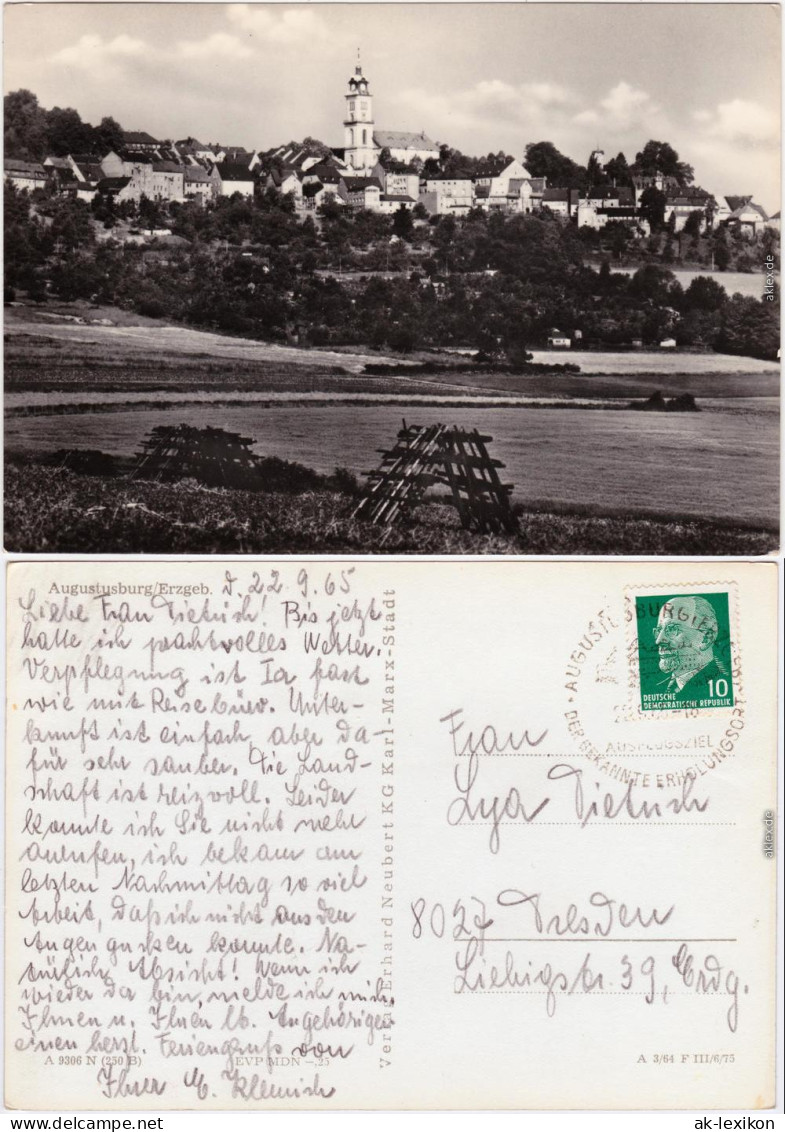 aklex.de
Augustusburg/Erzgeb. d. 22.9.65
Liebe Frau Dietrich! Bis jetzt
hatte ich prachtvolles Wetter.
Verpflegung ist Ia fast
wie mit Reisebüro. Unter-
kunft ist einfach, aber da-
für sehr sauber. Die Land-
schaft ist reizvoll. Leider
konnte ich Sie nicht mehr
anrufen, ich bekam am
letzten Nachmittag so viel
Arbeit, daß ich nicht aus den
Augen gucken konnte. Na-
türlich Absicht! Wenn ich
wieder da bin, melde ich mich.
Ihnen u. Ihren lb. Angehörigen
einen herzl. Feriengruß von
Ihrer E. Klemich
A 9306 N (250 B) EVP MDN -,25
Verlag Erhard Neubert KG Karl-Marx-Stadt
AUGUSTUSBURG (ERZGEB)
DER BEKANNTE ERHOLUNGSORT
AUSFLUGSZIEL
10
DEUTSCHE
DEMOKRATISCHE REPUBLIK
Frau
Lya Dietrich
8027 Dresden
Liebigstr. 39, Erdg.
A 3/64 F III/6/75
aklex.de
ak-lexikon